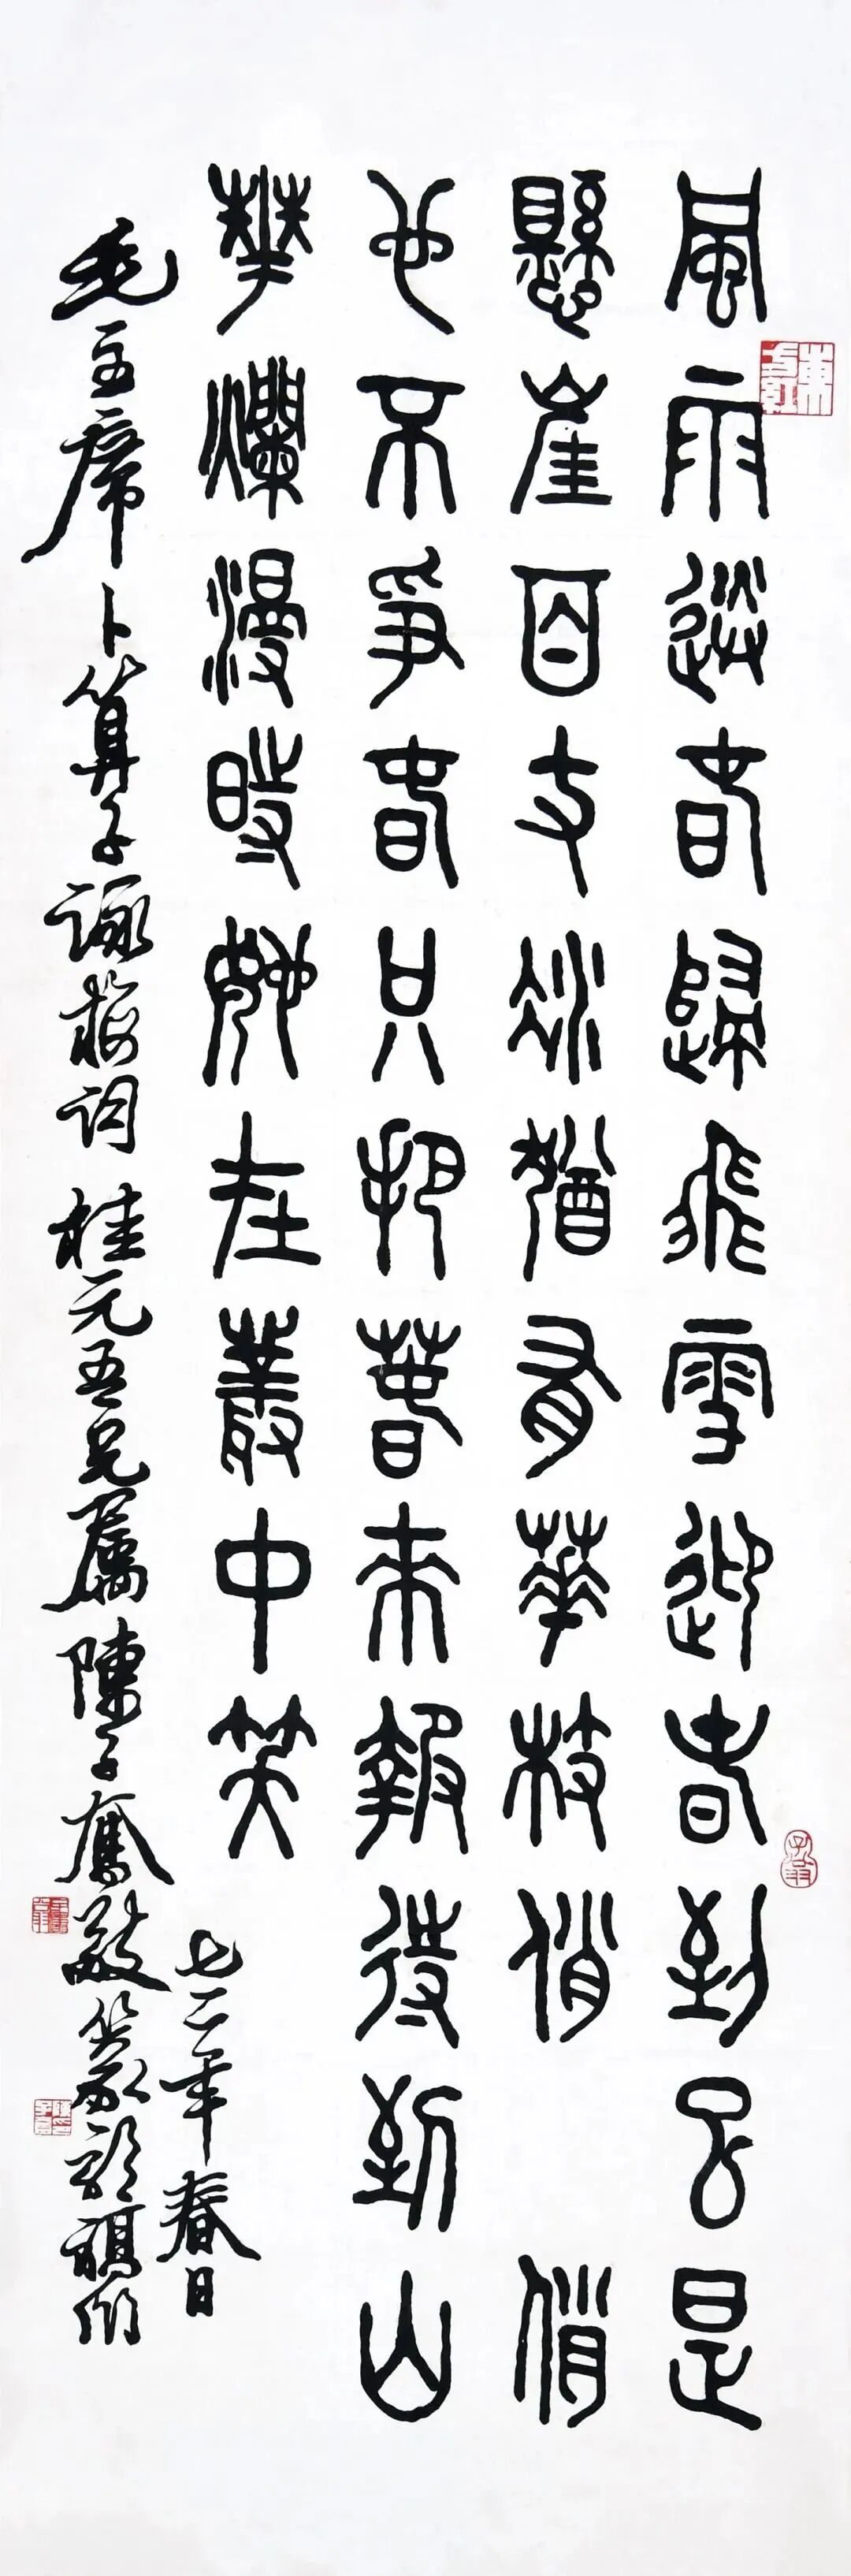 風雨送春歸飛雪迎春到已是
懸崖百丈冰猶有華枝俏俏
也不爭春只把春來報待到山
華爛漫時她在叢中笑
七二年春日
毛主席卜算子詠梅詞 桂元吾兄屬 陳子奮敬篆
東方紅
子奮